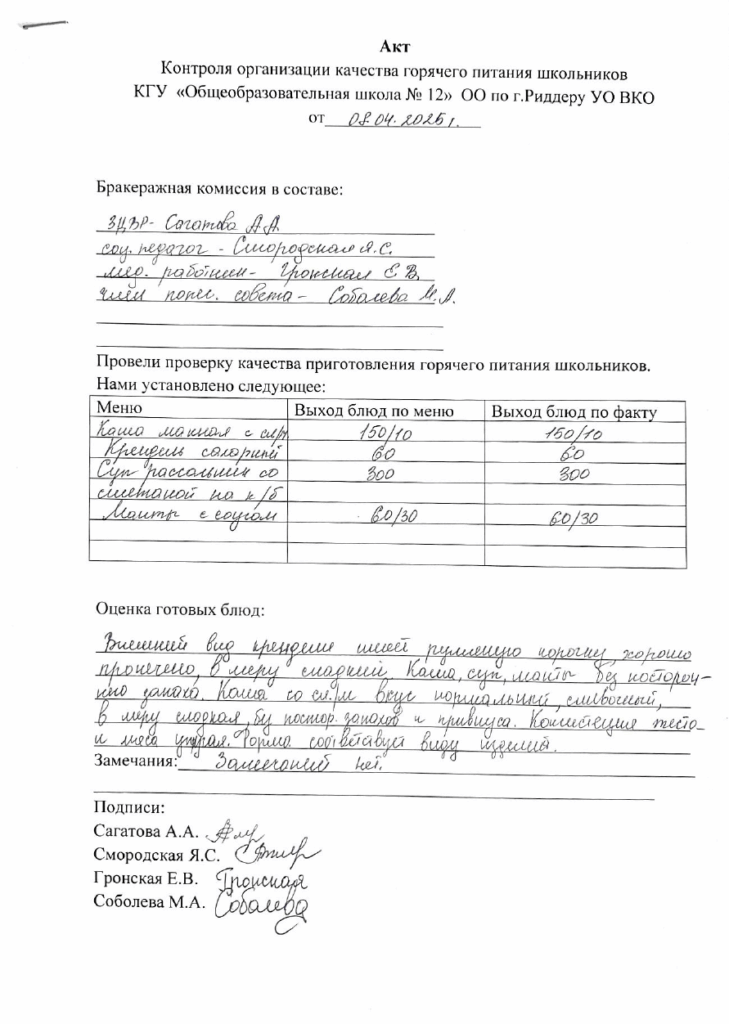 Акт
Контроля организации качества горячего питания школьников
КГУ «Общеобразовательная школа № 12» ОО по г.Риддеру УО ВКО
от 08.04.2025г.
Бракеражная комиссия в составе:
ЗДВР- Сагатова А.А.
соц. педагог - Смородская Я.С.
мед. работник- Гронская Е.В.
член попеч. совета - Соболева М.А.
Провели проверку качества приготовления горячего питания школьников.
Нами установлено следующее:
Меню Выход блюд по меню Выход блюд по факту
Каша манная с сл/м 150/10 150/10
Крендель сахарный 60 60
Суп рассольник со 300 300
сметаной на к/б
Манты с соусом 60/30 60/30
Оценка готовых блюд:
Внешний вид кренделя имеет румяную корочку, хорошо
пропечено, в меру сладкий. Каша, суп, манты без посторон-
него запаха. Каша со сл/м вкус нормальный, сливочный,
в меру сладкая, без постор. запахов и привкуса. Консистенция теста
и мяса упругая. Форма соответствует виду изделия.
Замечания: Замечаний нет.
Подписи:
Сагатова А.А.
Смородская Я.С.
Гронская Е.В. Гронская
Соболева М.А. Соболева